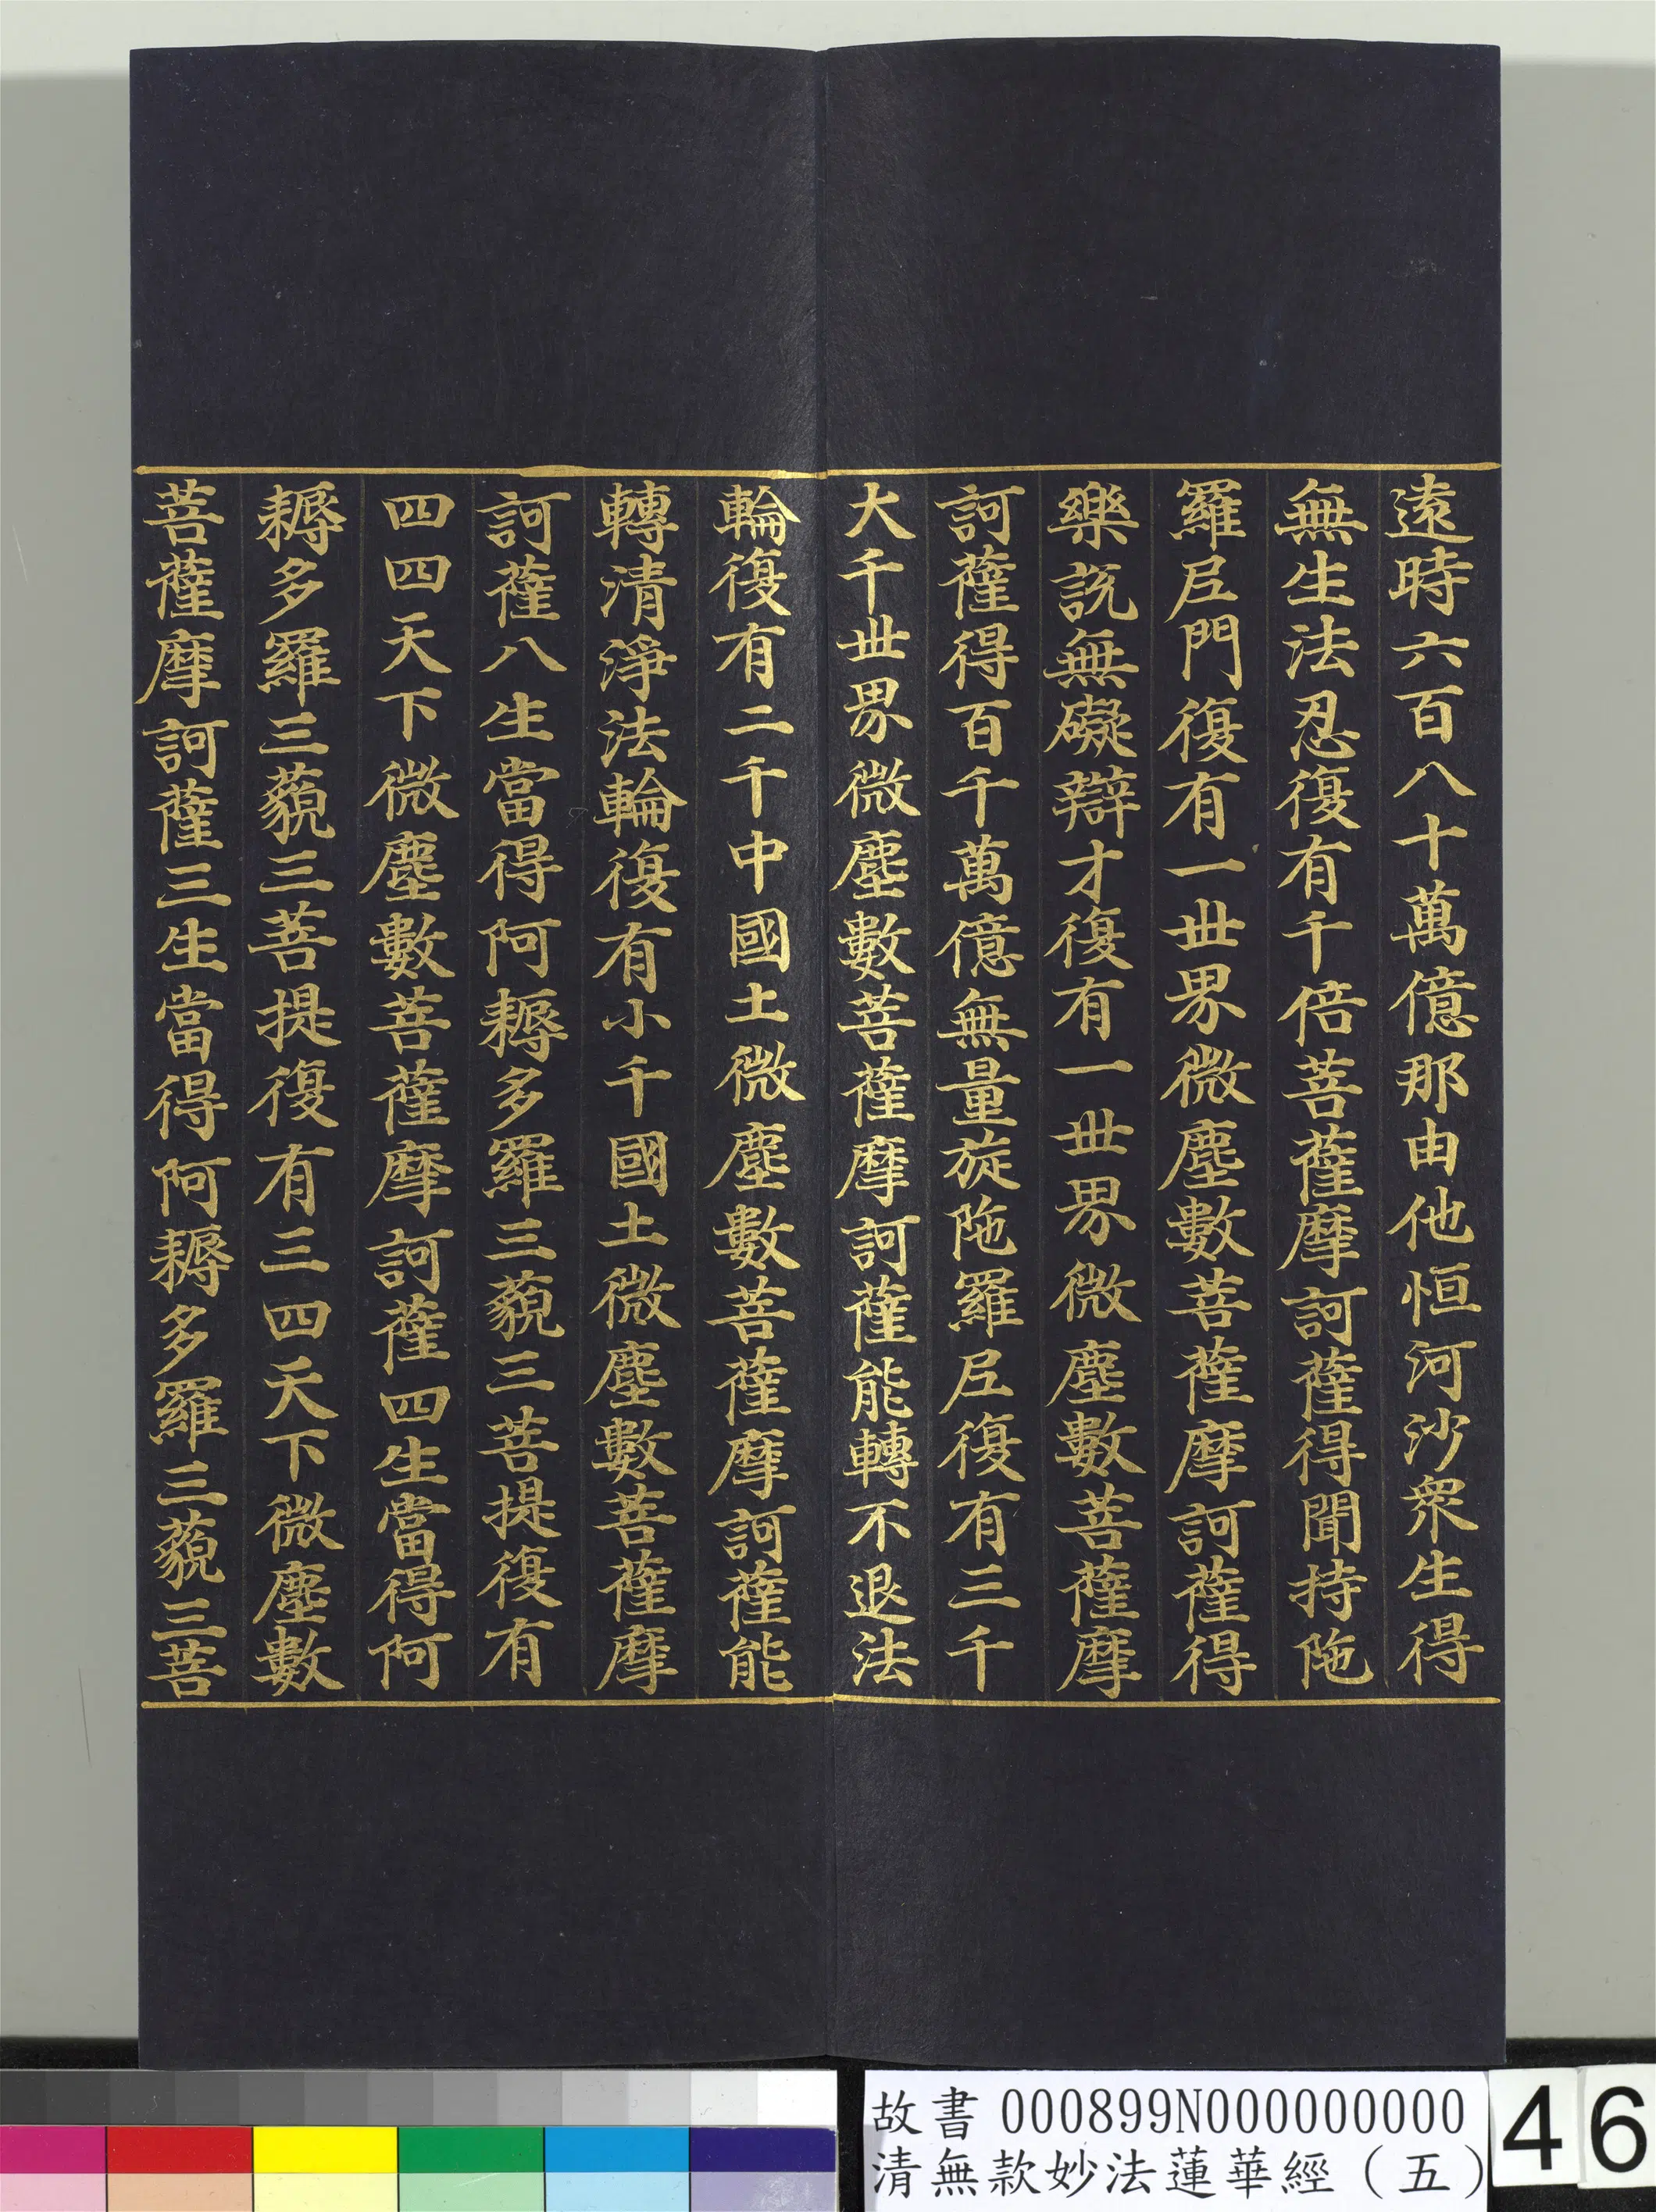 遠時六百八十萬億那由他恒河沙衆生得
無生法忍復有千倍菩薩摩訶薩得聞持陁
羅尼門復有一世界微塵數菩薩摩訶薩得
樂説無礙辯才復有一世界微塵數菩薩摩
訶薩得百千萬億無量旋陁羅尼復有三千
大千世界微塵數菩薩摩訶薩能轉不退法
輪復有二千中國土微塵數菩薩摩訶薩能
轉清淨法輪復有小千國土微塵數菩薩摩
訶薩八生當得阿耨多羅三藐三菩提復有
四四天下微塵數菩薩摩訶薩四生當得阿
耨多羅三藐三菩提復有三四天下微塵數
菩薩摩訶薩三生當得阿耨多羅三藐三菩
故書 000899N000000000
清無款妙法蓮華經（五）
46